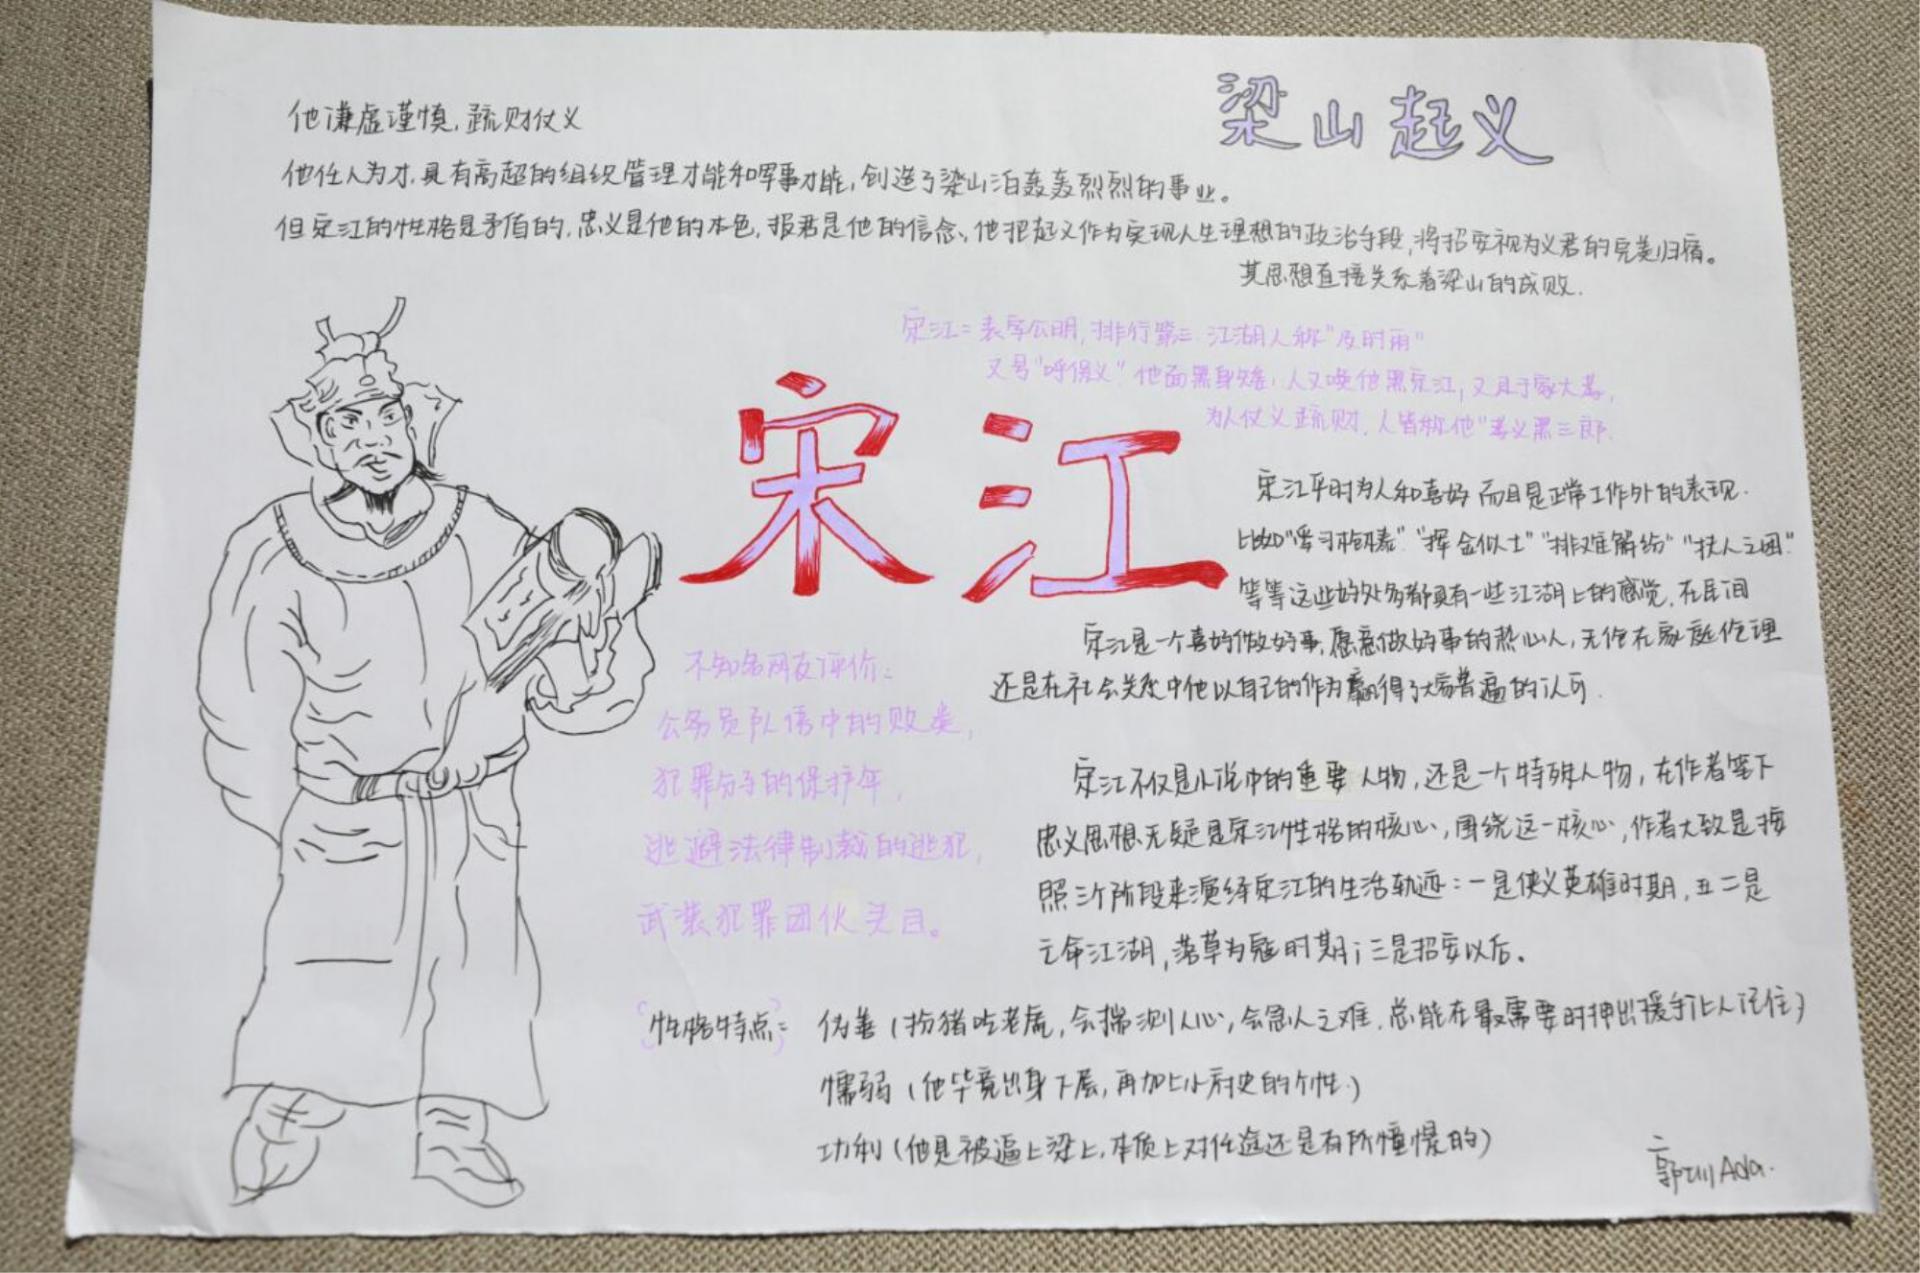 梁山起义
他谦虚谨慎,疏财仗义
他任人为才,具有高超的组织管理才能和军事才能,创造了梁山泊轰轰烈烈的事业。
但宋江的性格是矛盾的,忠义是他的本色,报君是他的信念、他把起义作为实现人生理想的政治手段,将招安视为义君的完美归宿。
其思想直接关系着梁山的成败.
宋江:表字公明,排行第三.江湖人称"及时雨"
又号"呼保义".他面黑身矮,人又唤他黑宋江,又且于家大孝,
为人仗义疏财,人皆称他"孝义黑三郎.
宋江
宋江平时为人和喜好 而且是正常工作外的表现.
比如"学习枪棒""挥金似土""排难解纷""扶人之困".
等等这些好处多都具有一些江湖上的感觉,在民间
宋江是一个喜好做好事,愿意做好事的热心人,无伦在家庭伦理
还是在社会关系中他以自己的作为赢得了大家普遍的认可.
不知名网友评价:
公务员队伍中的败类,
犯罪分子的保护伞,
逃避法律制裁的逃犯,
武装犯罪团伙头目。
宋江不仅是小说中的重要人物,还是一个特殊人物,在作者笔下
忠义思想无疑是宋江性格的核心,围绕这一核心,作者大致是按
照三个阶段来演绎宋江的生活轨迹:一是侠义英雄时期,二是
亡命江湖,落草为寇时期;三是招安以后。
性格特点: 伪善(扮猪吃老虎,会揣测人心,会急人之难.总能在最需要时押出援手让人记住)
懦弱(他毕竟出身下层,再加上小府吏的个性.)
功利(他是被逼上梁上,本质上对仕途还是有所憧憬的)
郭 Ada.